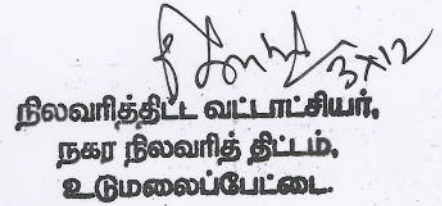 நிலவரித்திட்ட வட்டாட்சியர்,
நகர நிலவரித் திட்டம்,
உடுமலைப்பேட்டை.